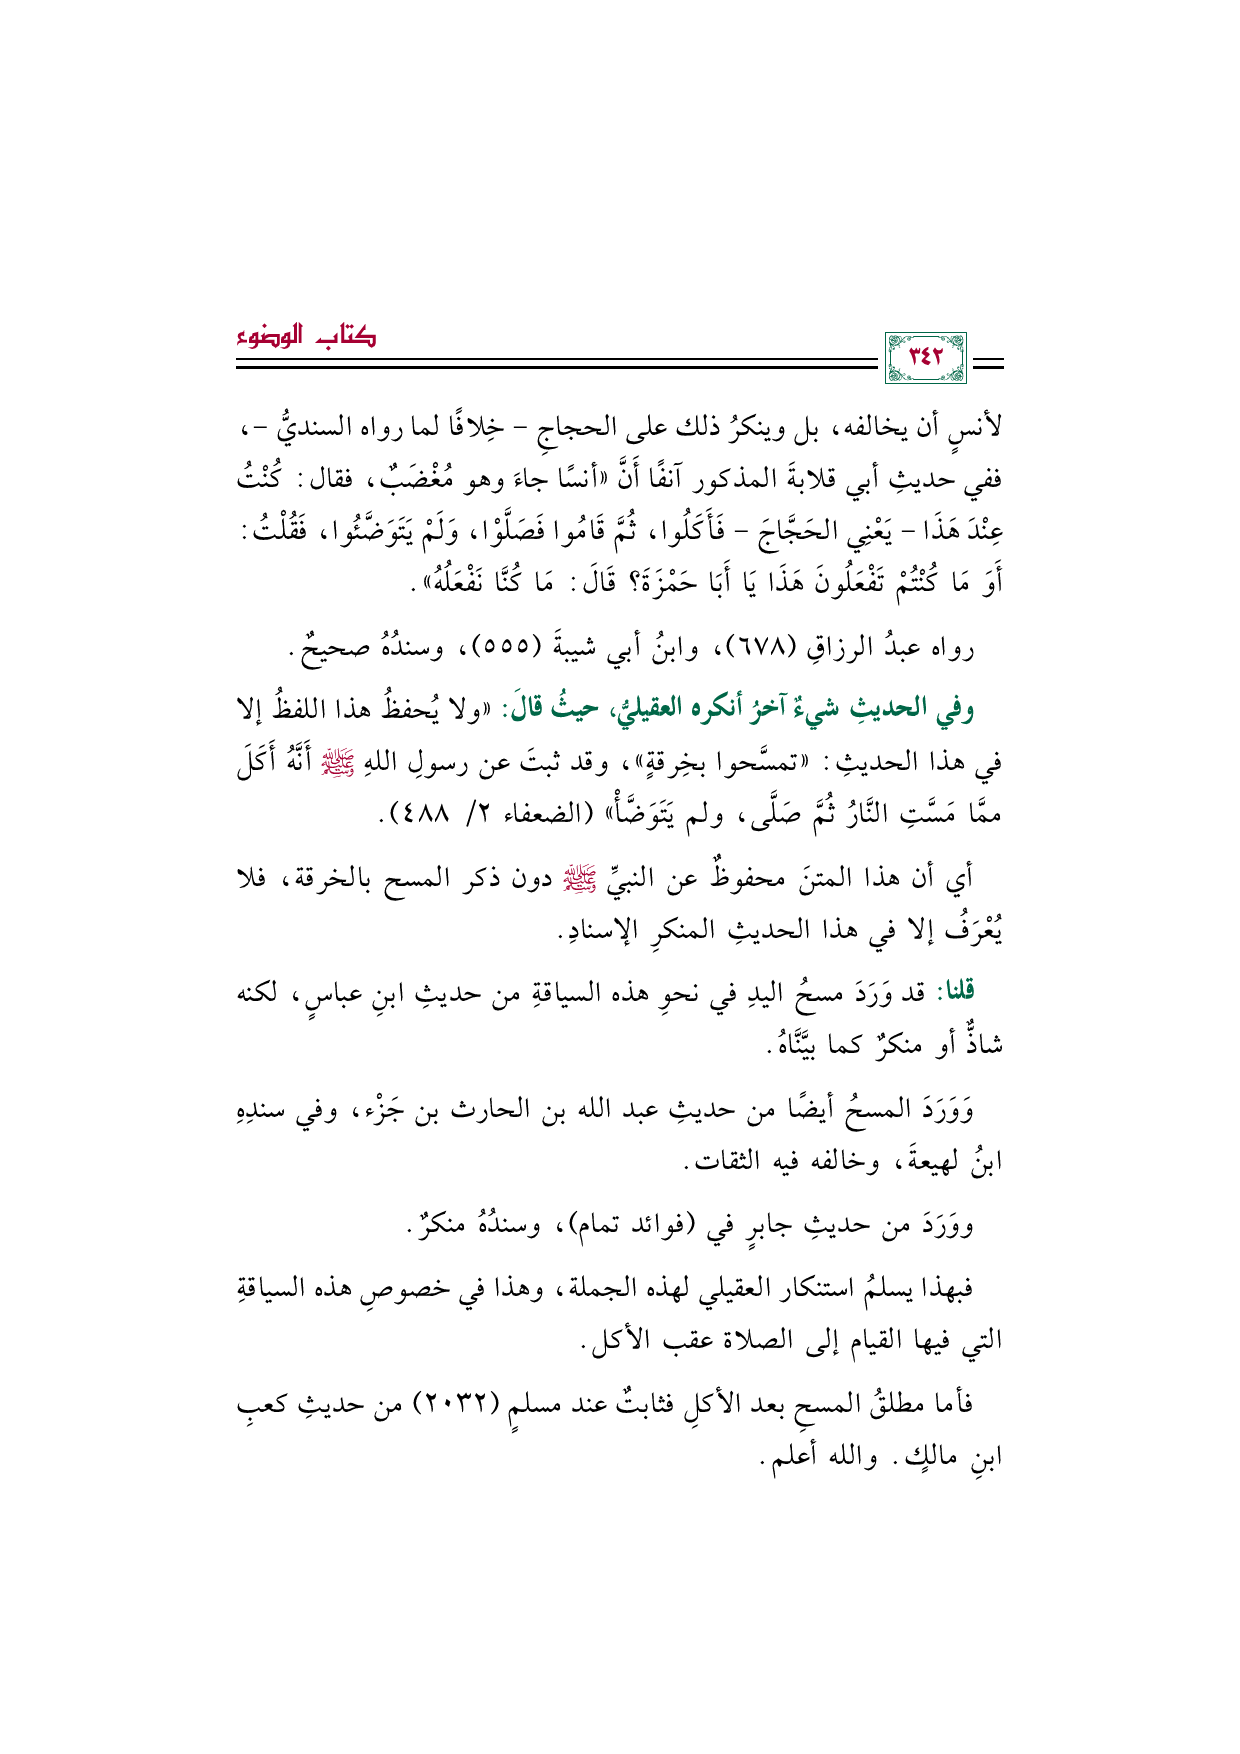 كتاب الوضوء
٣٤٢
لأنسٍ أن يخالفه، بل وينكرُ ذلك على الحجاجِ - خِلافًا لما رواه السنديُّ -،
ففي حديثِ أبي قلابةَ المذكور آنفًا أَنَّ «أنسًا جاءَ وهو مُغْضَبٌ، فقال: كُنْتُ
عِنْدَ هَذَا - يَعْنِي الحَجَّاجَ - فَأَكَلُوا، ثُمَّ قَامُوا فَصَلَّوْا، وَلَمْ يَتَوَضَّئُوا، فَقُلْتُ:
أَوَ مَا كُنْتُمْ تَفْعَلُونَ هَذَا يَا أَبَا حَمْزَةَ؟ قَالَ: مَا كُنَّا نَفْعَلُهُ».
رواه عبدُ الرزاقِ (٦٧٨)، وابنُ أبي شيبةَ (٥٥٥)، وسندُهُ صحيحٌ.
وفي الحديثِ شيءٌ آخرُ أنكره العقيليُّ، حيثُ قالَ: «ولا يُحفظُ هذا اللفظُ إلا
في هذا الحديثِ: «تمسَّحوا بخِرقةٍ»، وقد ثبتَ عن رسولِ اللهِ ﷺ أَنَّهُ أَكَلَ
ممَّا مَسَّتِ النَّارُ ثُمَّ صَلَّى، ولم يَتَوَضَّأْ» (الضعفاء ٢/ ٤٨٨).
أي أن هذا المتنَ محفوظٌ عن النبيِّ ﷺ دون ذكر المسح بالخرقة، فلا
يُعْرَفُ إلا في هذا الحديثِ المنكرِ الإسنادِ.
قلنا: قد وَرَدَ مسحُ اليدِ في نحوِ هذه السياقةِ من حديثِ ابنِ عباسٍ، لكنه
شاذٌّ أو منكرٌ كما بيَّنَّاهُ.
وَوَرَدَ المسحُ أيضًا من حديثِ عبد الله بن الحارث بن جَزْء، وفي سندِهِ
ابنُ لهيعةَ، وخالفه فيه الثقات.
ووَرَدَ من حديثِ جابرٍ في (فوائد تمام)، وسندُهُ منكرٌ.
فبهذا يسلمُ استنكار العقيلي لهذه الجملة، وهذا في خصوصِ هذه السياقةِ
التي فيها القيام إلى الصلاة عقب الأكل.
فأما مطلقُ المسحِ بعد الأكلِ فثابتٌ عند مسلمٍ (٢٠٣٢) من حديثِ كعبِ
ابنِ مالكٍ. والله أعلم.